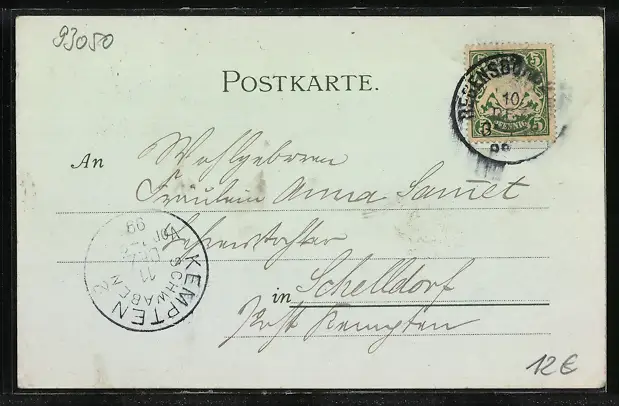 93050
POSTKARTE.
5 5
PFENNIG
REGENSBURG
10
98
An Wohlgeboren
Fräulein Anna Samet
Lehrerstochter
in Schelldorf
Post Kempten
KEMPTEN
SCHWABEN
11
12 €